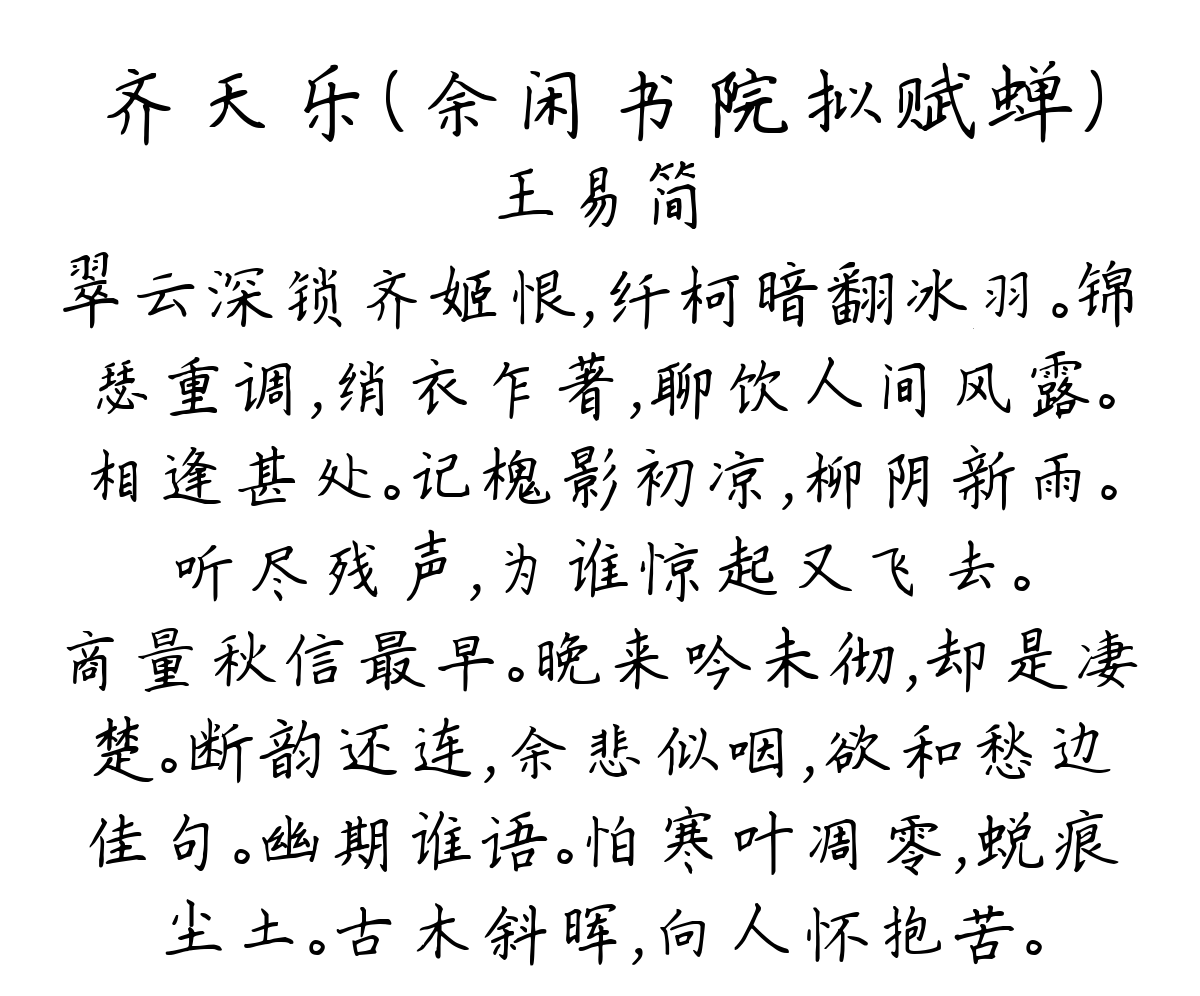 齐天乐(余闲书院拟赋蝉)
王易简
翠云深锁齐姬恨,纤柯暗翻冰羽。锦
瑟重调,绡衣乍著,聊饮人间风露。
相逢甚处。记槐影初凉,柳阴新雨。
听尽残声,为谁惊起又飞去。
商量秋信最早。晚来吟未彻,却是凄
楚。断韵还连,余悲似咽,欲和愁边
佳句。幽期谁语。怕寒叶凋零,蜕痕
尘土。古木斜晖,向人怀抱苦。